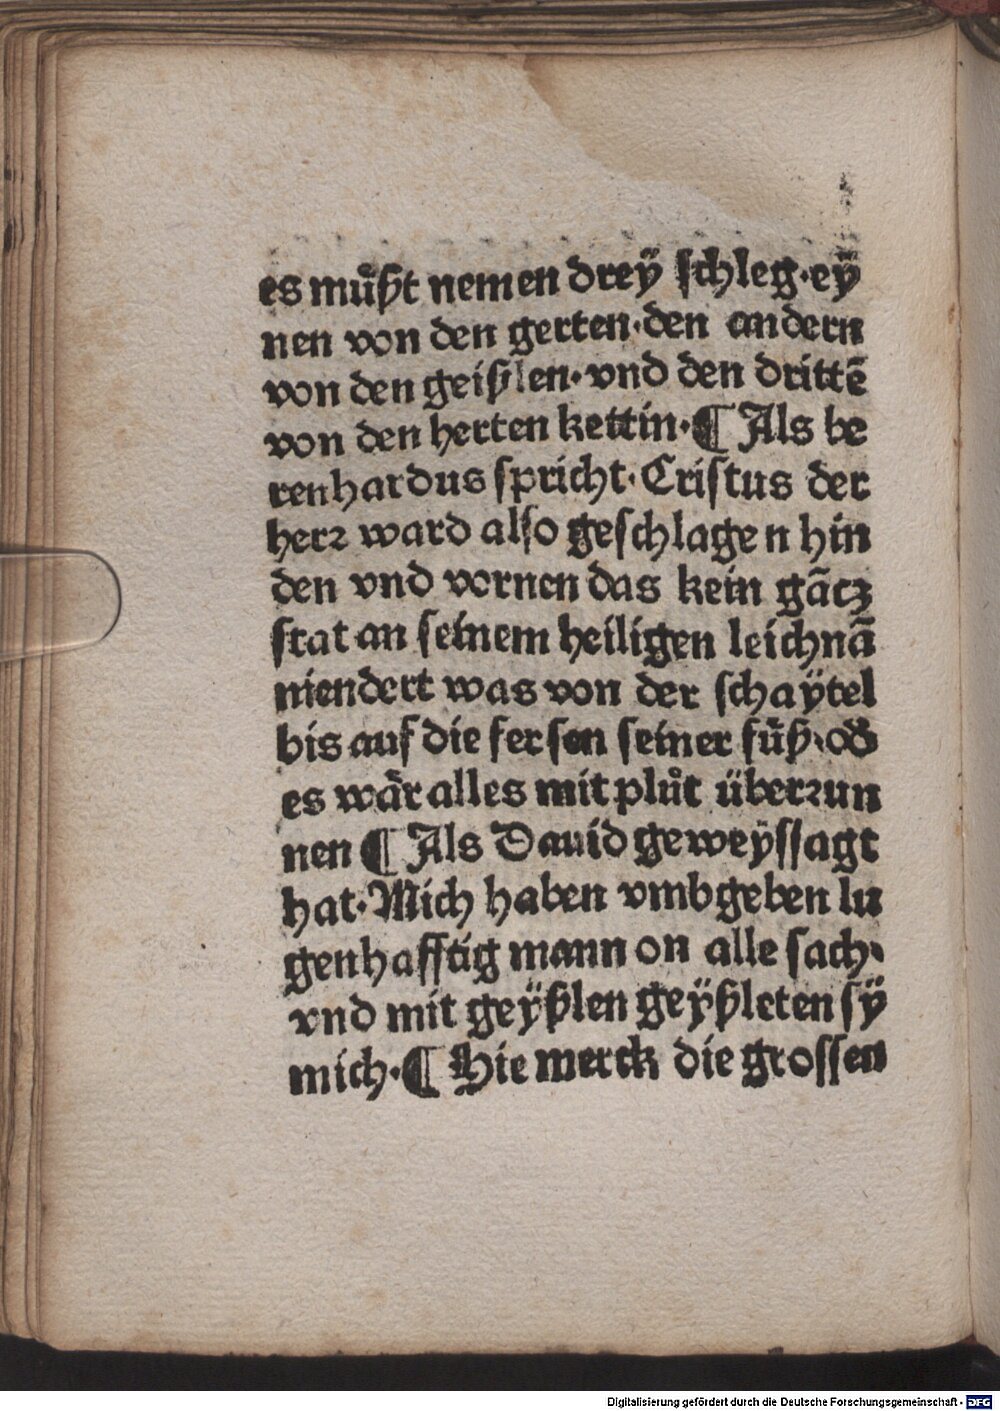 es muͦßt nemen dreÿ ſchleg·eÿ
nen von den gerten·den andern
von den geiſzlen·vnd den drittē
von den herten kettin·¶ Als be
renhardus ſpricht·Criſtus der
herꝛ ward alſo geſchlagen hin
den vnd vornen das kein gātʒ
ſtat an ſeinem heiligen leichnā
niendert was von der ſchaÿtel
bis auf die ferſen ſeiner fuͤß·od̕
es waͤr alles mit pluͦt überꝛun
nen ¶ Als Dauid geweÿſſagt
hat·Mich haben vmbgeben lu
genhafftig mann on alle ſach·
vnd mit geÿßlen geÿßleten ſÿ
mich·¶ Hie merck die groſſen
Digitalisierung gefördert durch die Deutsche Forschungsgemeinschaft - DFG